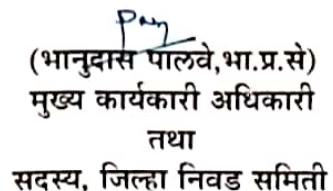 (भानुदास पालवे,भा.प्र.से)
मुख्य कार्यकारी अधिकारी
तथा
सदस्य, जिल्हा निवड समिती